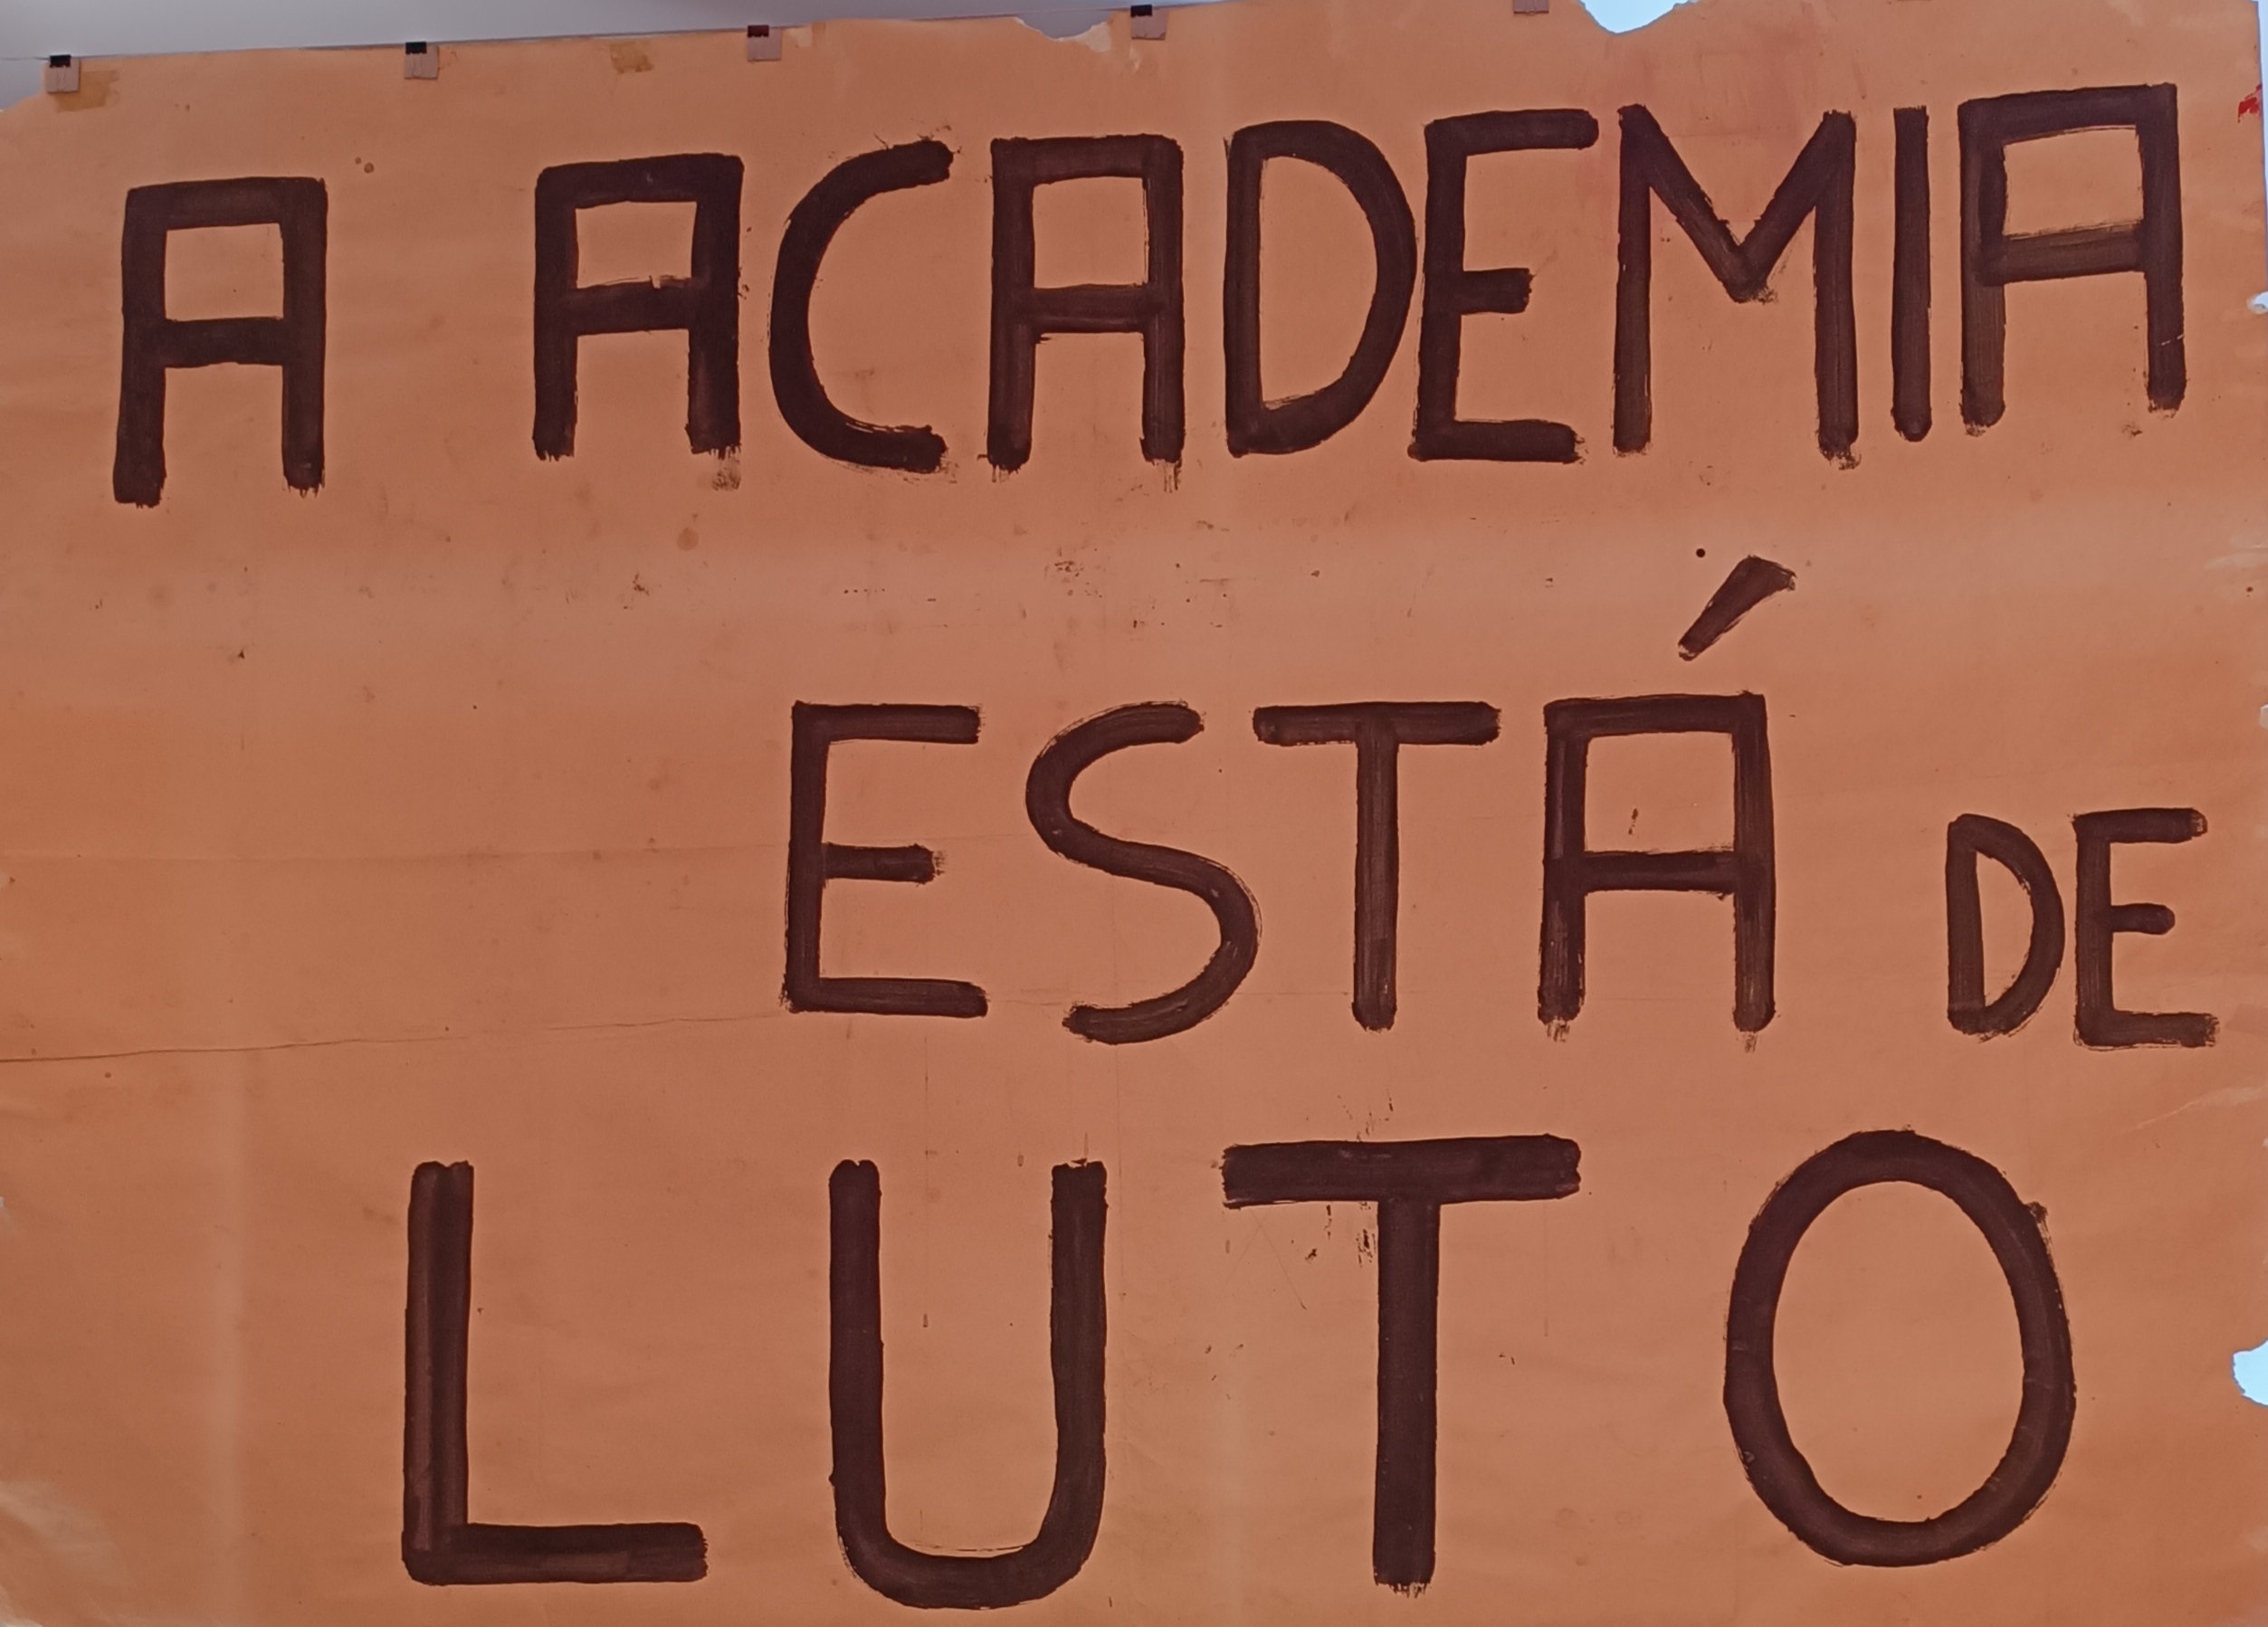 A ACADEMIA
ESTÁ DE
LUTO